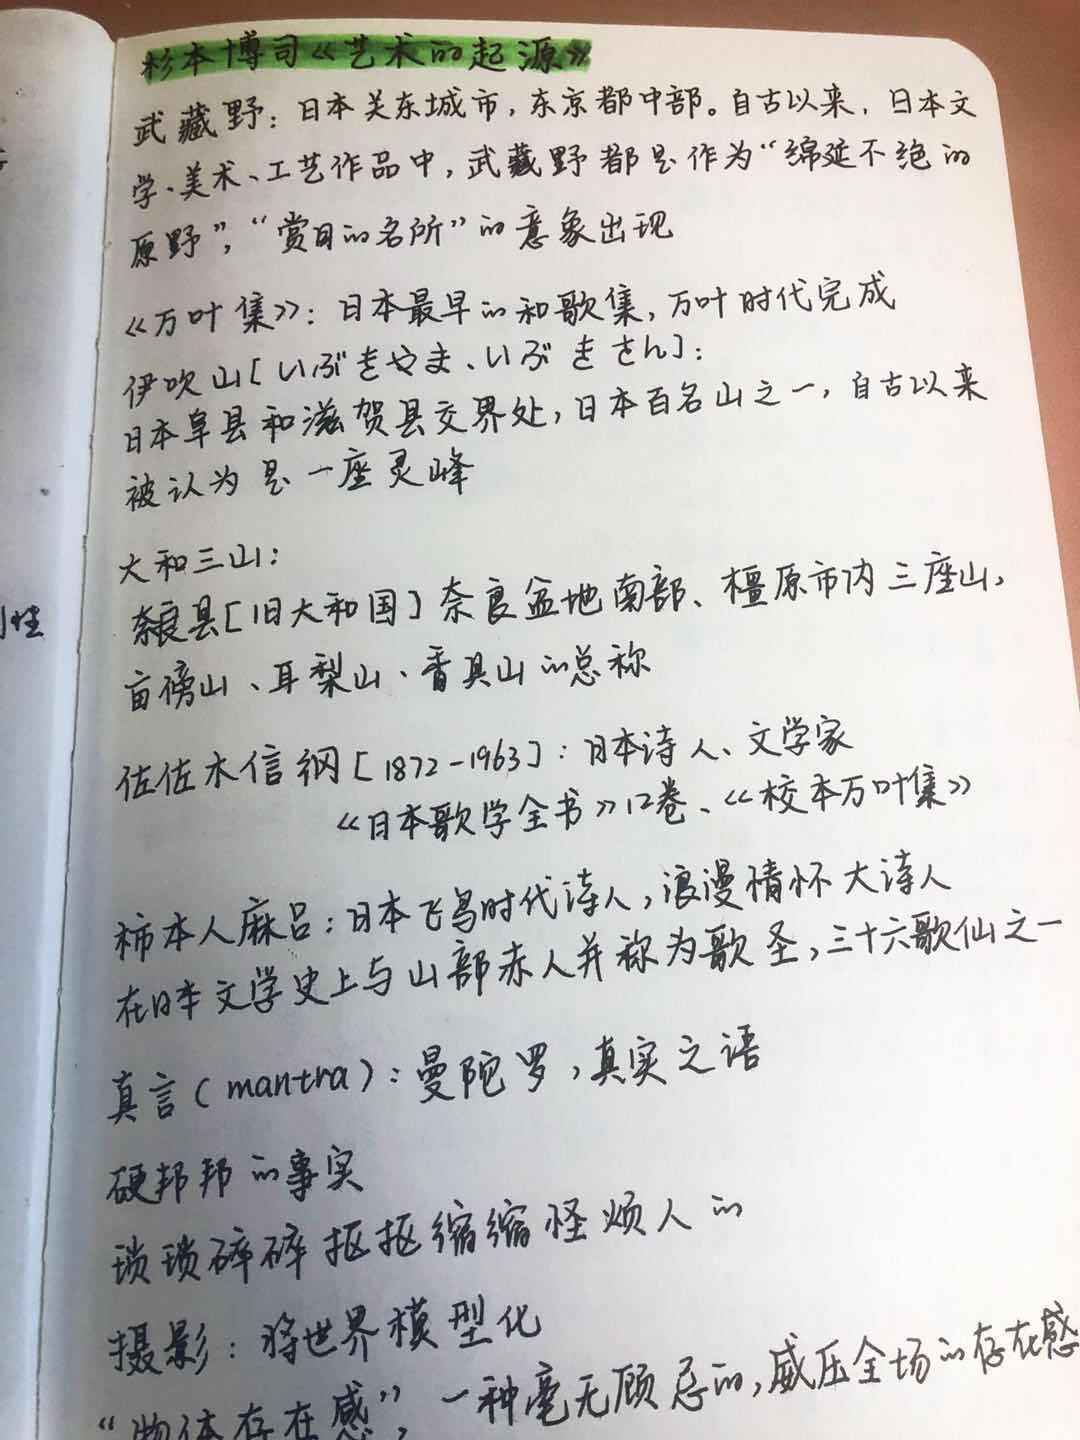 杉本博司《艺术的起源》
武藏野：日本关东城市，东京都中部。自古以来，日本文
学、美术、工艺作品中，武藏野都是作为“绵延不绝的
原野”，“赏月的名所”的意象出现
《万叶集》：日本最早的和歌集，万叶时代完成
伊吹山［いぶきやま、いぶきさん］：
日本阜县和滋贺县交界处，日本百名山之一，自古以来
被认为是一座灵峰
大和三山：
奈良县［旧大和国］奈良盆地南部、橿原市内三座山，
亩傍山、耳梨山、香具山的总称
佐佐木信纲［1872-1963］：日本诗人、文学家
《日本歌学全书》12卷、《校本万叶集》
柿本人麻吕：日本飞鸟时代诗人，浪漫情怀大诗人
在日本文学史上与山部赤人并称为歌圣，三十六歌仙之一
真言（mantra）：曼陀罗，真实之语
硬邦邦的事实
琐琐碎碎抠抠缩缩怪烦人的
摄影：将世界模型化
“物体存在感”，一种毫无顾忌的，威压全场的存在感
性